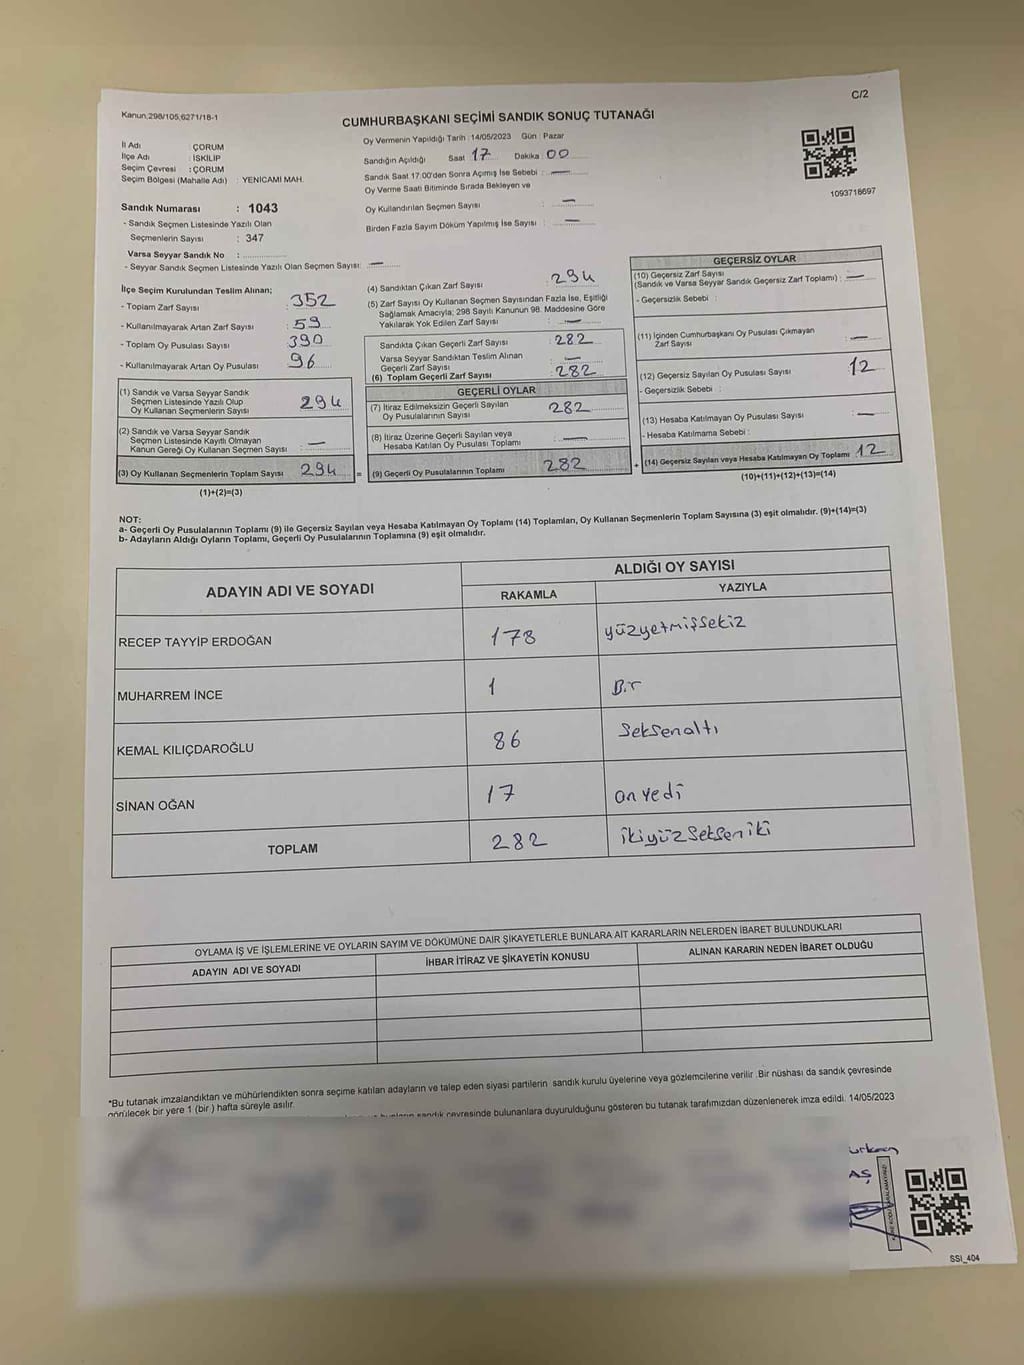 C/2
Kanun.298/105,6271/18-1
CUMHURBAŞKANI SEÇİMİ SANDIK SONUÇ TUTANAĞI
İl Adı : ÇORUM
İlçe Adı : İSKİLİP
Seçim Çevresi : ÇORUM
Seçim Bölgesi (Mahalle Adı) : YENİCAMİ MAH.
Sandık Numarası : 1043
- Sandık Seçmen Listesinde Yazılı Olan
Seçmenlerin Sayısı : 347
Varsa Seyyar Sandık No :
- Seyyar Sandık Seçmen Listesinde Yazılı Olan Seçmen Sayısı: —
Oy Vermenin Yapıldığı Tarih : 14/05/2023 Gün : Pazar
Sandığın Açıldığı Saat 17 Dakika : 00
Sandık Saat 17:00'den Sonra Açımış İse Sebebi : —
Oy Verme Saati Bitiminde Sırada Bekleyen ve
Oy Kullandırılan Seçmen Sayısı : —
Birden Fazla Sayım Döküm Yapılmış İse Sayısı : —
1093718697
İlçe Seçim Kurulundan Teslim Alınan;
- Toplam Zarf Sayısı : 352
- Kullanılmayarak Artan Zarf Sayısı : 59
- Toplam Oy Pusulası Sayısı : 390
- Kullanılmayarak Artan Oy Pusulası : 96
(1) Sandık ve Varsa Seyyar Sandık
Seçmen Listesinde Yazılı Olup
Oy Kullanan Seçmenlerin Sayısı 294
(2) Sandık ve Varsa Seyyar Sandık
Seçmen Listesinde Kayıtlı Olmayan
Kanun Gereği Oy Kullanan Seçmen Sayısı —
(3) Oy Kullanan Seçmenlerin Toplam Sayısı 294
(1)+(2)=(3)
(4) Sandıktan Çıkan Zarf Sayısı : 294
(5) Zarf Sayısı Oy Kullanan Seçmen Sayısından Fazla İse, Eşitliği
Sağlamak Amacıyla; 298 Sayılı Kanunun 98. Maddesine Göre
Yakılarak Yok Edilen Zarf Sayısı : —
Sandıkta Çıkan Geçerli Zarf Sayısı : 282
Varsa Seyyar Sandıktan Teslim Alınan
Geçerli Zarf Sayısı : —
(6) Toplam Geçerli Zarf Sayısı : 282
GEÇERLİ OYLAR
(7) İtiraz Edilmeksizin Geçerli Sayılan
Oy Pusulalarının Sayısı 282
(8) İtiraz Üzerine Geçerli Sayılan veya
Hesaba Katılan Oy Pusulası Toplamı —
(9) Geçerli Oy Pusulalarının Toplamı 282
GEÇERSİZ OYLAR
(10) Geçersiz Zarf Sayısı
(Sandık ve Varsa Seyyar Sandık Geçersiz Zarf Toplamı) : —
- Geçersizlik Sebebi :
(11) İçinden Cumhurbaşkanı Oy Pusulası Çıkmayan
Zarf Sayısı : —
(12) Geçersiz Sayılan Oy Pusulası Sayısı 12
- Geçersizlik Sebebi :
(13) Hesaba Katılmayan Oy Pusulası Sayısı : —
- Hesaba Katılmama Sebebi :
(14) Geçersiz Sayılan veya Hesaba Katılmayan Oy Toplamı 12
(10)+(11)+(12)+(13)=(14)
NOT:
a- Geçerli Oy Pusulalarının Toplamı (9) ile Geçersiz Sayılan veya Hesaba Katılmayan Oy Toplamı (14) Toplamları, Oy Kullanan Seçmenlerin Toplam Sayısına (3) eşit olmalıdır. (9)+(14)=(3)
b- Adayların Aldığı Oyların Toplamı, Geçerli Oy Pusulalarının Toplamına (9) eşit olmalıdır.
ADAYIN ADI VE SOYADI ALDIĞI OY SAYISI
RAKAMLA YAZIYLA
RECEP TAYYİP ERDOĞAN 178 yüzyetmişsekiz
MUHARREM İNCE 1 Bir
KEMAL KILIÇDAROĞLU 86 Seksenaltı
SİNAN OĞAN 17 onyedi
TOPLAM 282 ikiyüzSekseniki
OYLAMA İŞ VE İŞLEMLERİNE VE OYLARIN SAYIM VE DÖKÜMÜNE DAİR ŞİKAYETLERLE BUNLARA AİT KARARLARIN NELERDEN İBARET BULUNDUKLARI
ADAYIN ADI VE SOYADI İHBAR İTİRAZ VE ŞİKAYETİN KONUSU ALINAN KARARIN NEDEN İBARET OLDUĞU
*Bu tutanak imzalandıktan ve mühürlendikten sonra seçime katılan adayların ve talep eden siyasi partilerin sandık kurulu üyelerine veya gözlemcilerine verilir .Bir nüshası da sandık çevresinde
görülecek bir yere 1 (bir ) hafta süreyle asılır.
sandık çevresinde bulunanlara duyurulduğunu gösteren bu tutanak tarafımızdan düzenlenerek imza edildi. 14/05/2023
AŞ
SSI_404